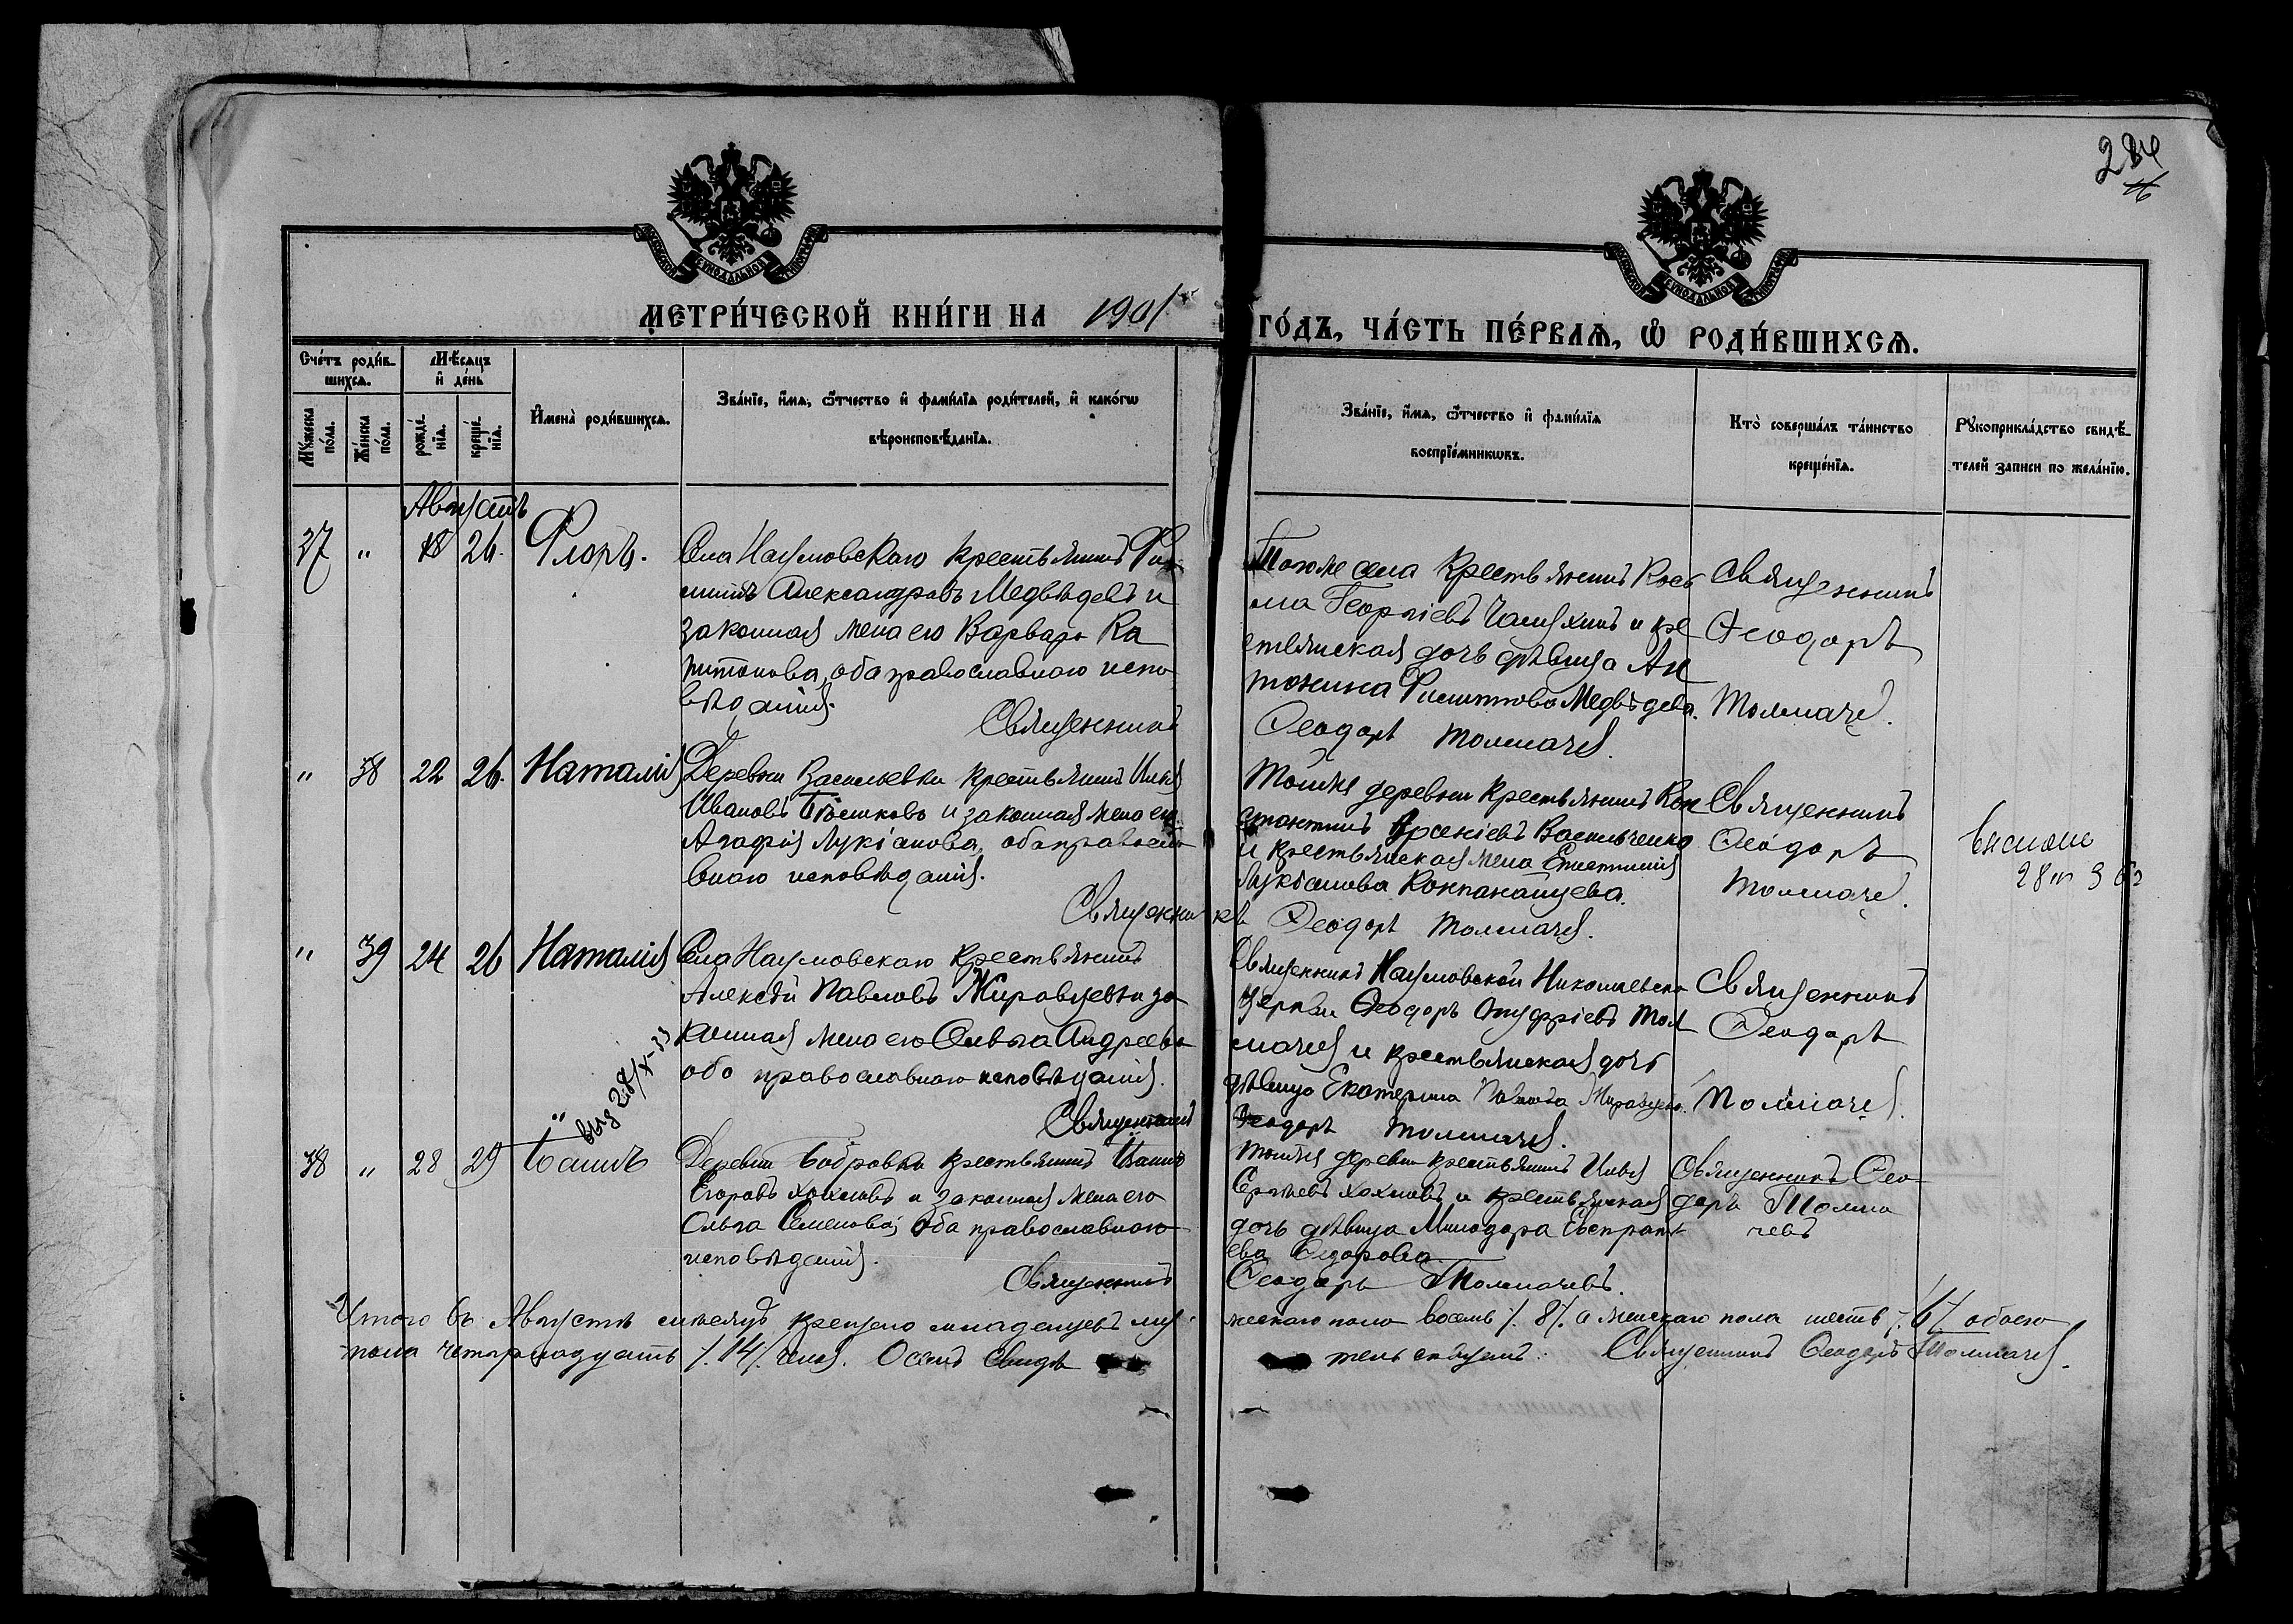 284
МОСКОВСКОЙ СѴНОДАЛЬНОЙ ТИПОГРАФІИ
МОСКОВСКОЙ СѴНОДАЛЬНОЙ ТИПОГРАФІИ
МЕТРИ́ЧЕСКОЙ КНИ́ГИ НА 1901
ГО́ДЪ, ЧА́СТЬ ПЕ́РВАѦ, Ѡ РОДИ́ВШИХСѦ.
Сче́тъ роди́в-
шихсѧ.
Мѣ́сѧцъ
и҆ де́нь
Мꙋ́жеска
по́ла.
Же́нска
по́ла.
рожде́-
нїѧ.
креще́-
нїѧ.
И҆мена̀ роди́вшихсѧ.
Зва́нїе, и҆́мѧ, ѻ҆́тчество и҆ фами́лїѧ роди́телей, и҆ како́гѡ
вѣроисповѣ́данїѧ.
Зва́нїе, и҆́мѧ, ѻ҆́тчество и҆ фами́лїѧ
воспрїе́мникѡвъ.
Кто̀ соверша́лъ та́инство
креще́нїѧ.
Рꙋкоприкла́дство свидѣ́-
телей записи по жела́нїю.
Августъ
37 " 18 26. Флоръ.
Села Наумовскаго крестьянинъ Фи
Александровъ Медвѣдевъ и
законная жена его Варвара Ка
питонова, оба православнаго испо
вѣданія.
Священникъ
Тогоже села крестьянинъ Кось
ма Георгіевъ и кре
стьянская дочь дѣвица Ан
тонина Медвѣдева.
Ѳеодоръ Толмачев.
Священникъ
Ѳеодоръ
Толмачев.
" 38 22 26. Наталія
Деревни Васильевки крестьянинъ Илья
Ивановъ и законная жена его
Агафія Лукіанова, оба правосла
внаго исповѣданія.
Священникъ
Тойже деревни крестьянинъ Кон
стантинъ Арсеніевъ Васильченко
и крестьянская жена Епистимія
Лукіанова
Ѳеодоръ Толмачев.
Священникъ
Ѳеодоръ
Толмачев.
" 39 24 26 Наталія
Села Наумовскаго крестьянинъ
Алексѣй Павловъ Журавлевъ и за
конная жена его Ольга Андреева
оба православнаго исповѣданія.
Священникъ
Священникъ Наумовской Николаевской
церкви Ѳеодоръ Онуфріевъ Тол
мачевъ и крестьянская дочь
дѣвица Екатерина Павлова
Ѳеодоръ Толмачев.
Священникъ
Ѳеодоръ
Толмачев.
38 " 28 29
Деревни Бобровки крестьянинъ Иванъ
Егоровъ Хохловъ и законная жена его
Ольга Семенова, оба православнаго
исповѣданія.
Священникъ
Тойже деревни крестьянинъ Илья
Хохловъ и крестьянская
дочь дѣвица Минодора
Ѳедорова
Ѳеодоръ Толмачевъ.
Священникъ Ѳео
доръ Толма
чевъ
Итого въ Августѣ мѣсяцѣ крещено младенцевъ му
жескаго пола восемь /. 8 /. а женскаго пола шесть /. 6 /. обоего
пола четырнадцать /. 14 /. чел. О семъ свидѣ
тельствуемъ: Священникъ Ѳеодоръ Толмачев.